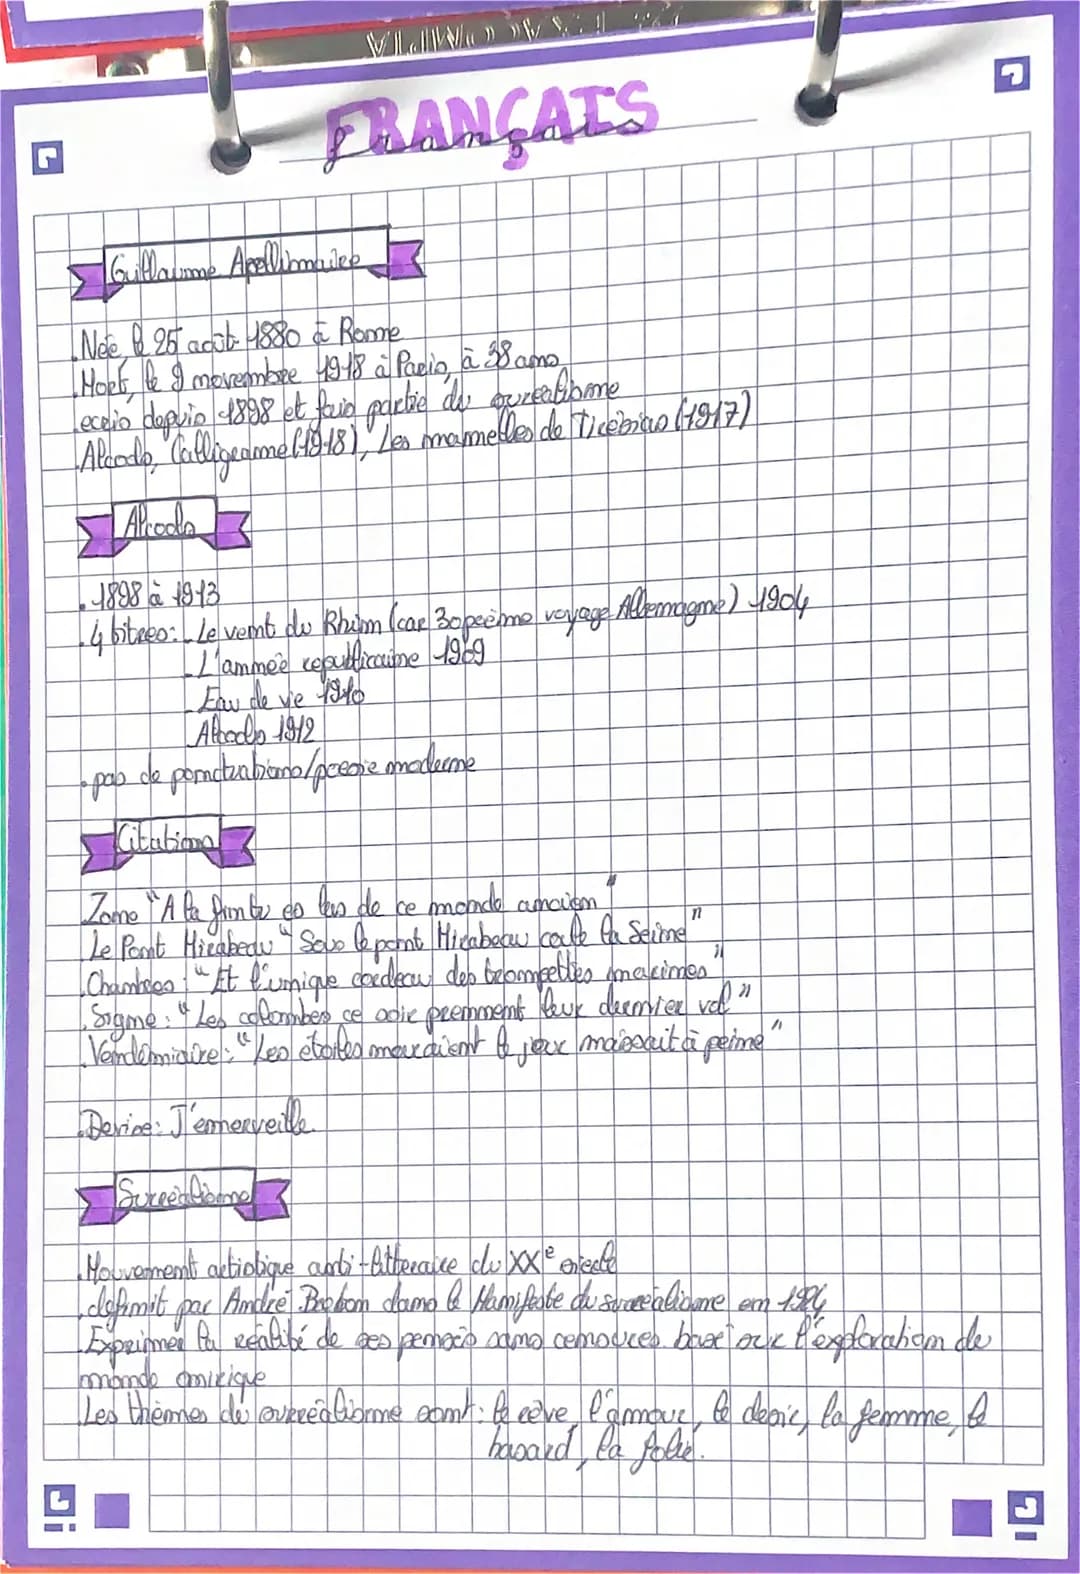 FRANÇAIS
français
Guillaume Apollinaire
Née, le 25 août 1880 à Rome
Mort, le 9 novembre 1918 à Paris, à 38 ans
ecris depuis 1898 et fais partie du surealisme
Alcools, Calligramme (1918), Les mamelles de Tirésias (1917)
Alcools
1898 à 1913
4 titres: Le vent du Rhin (car voyage Allemagne) 1904
L'année republicaine 1909
Eau de vie 1910
Alcools 1912
pas de ponctuations/poesie moderne
Citations
Zone "A la fin tu es las de ce monde ancien"
Le Pont Mirabeau "Sous le pont Mirabeau coule la Seine"
Chantres : "Et l'unique cordeau des trompettes marines"
Signe : "Les colombes ce soir prennent leur dernier vol"
Vendémiaire : "Les étoiles mouraient le jour naissait à peine"
Devise: J'émerveille
Surréalisme
Mouvement artistique anti-litteraire du XXe siecle
definit par André Breton dans le Manifeste du surréalisme en 1924
Exprimer la réalité de ses pensés sans censures basé sur l'exploration de
monde onirique
Les thèmes du surréalisme sont: le rêve, l'amour, le desir, la femme, le
hasard, la folie.